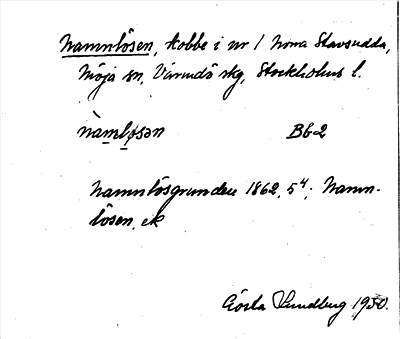 Namnlösen, kobbe i nr 1 Norra Stavsudda,
Möja sn, Värmdö skg, Stockholms l.
nàmløsən B62
Namnlösgrunden 1862, 5⁴; Namn-
lösen, ek
Gösta Sundberg 1930.